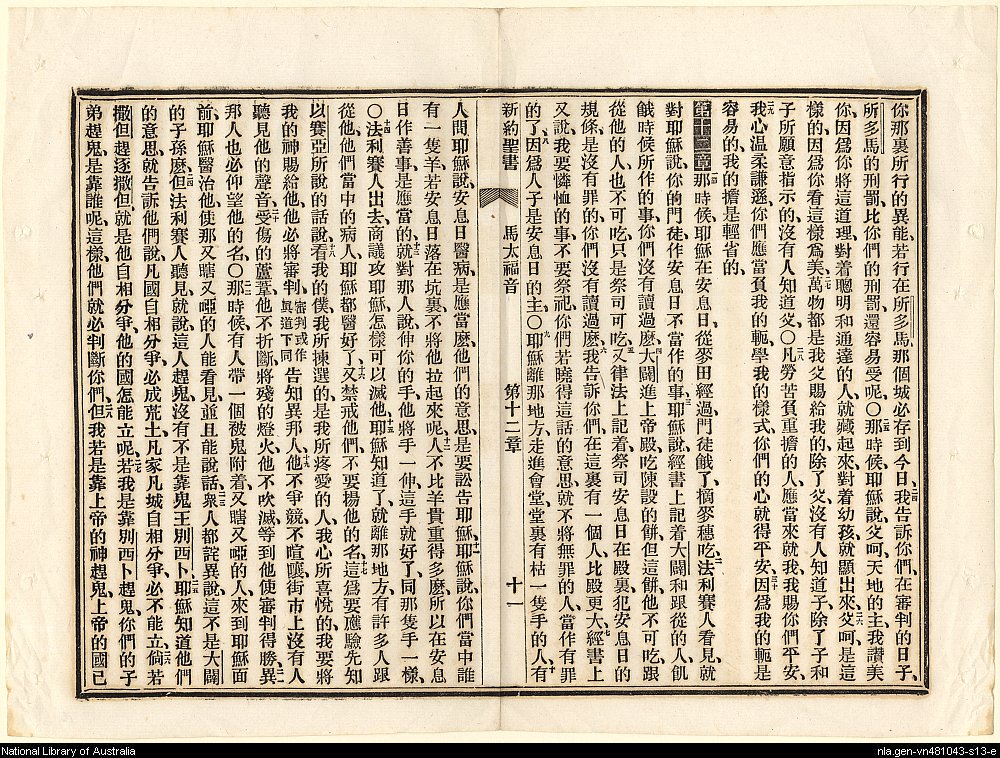 你那裏所行的異能、若行在所多馬、那個城必存到今日、我告訴你們、在審判的日子、
所多馬的刑罰、比你們的刑罰、還容易受呢○那時候、耶穌說、父呵、天地的主、我讚美
你、因爲你將這道理、對着聰明和通達的人、就藏起來、對着幼孩、就顯出來、父呵、是這
樣的、因爲你看這樣爲美、萬物都是我父賜給我的、除了父、沒有人知道子、除了子和
子所願意指示的、沒有人知道父、○凡勞苦負重擔的人、應當來就我、我賜你們平安、
我心温柔謙遜、你們應當負我的軛、學我的樣式、你們的心就得平安、因爲我的軛是
容易的、我的擔是輕省的、
第十二章 那時候、耶穌在安息日、從麥田經過、門徒餓了、摘麥穗吃、法利賽人看見、就
對耶穌說、你的門徒作安息日不當作的事、耶穌說、經書上記着大闢和跟從的人、飢
餓時候所作的事、你們沒有讀過麼、大闢進上帝殿、吃陳設的餅、但這餅、他不可吃、跟
從他的人也不可吃、只是祭司可吃、又律法上記着祭司安息日在殿裏犯安息日的
規條、是沒有罪的、你們沒有讀過麼、我告訴你們、在這裏有一個人、比殿更大、經書上
又說、我要憐恤的事、不要祭祀、你們若曉得這話的意思、就不將無罪的人、當作有罪
的了、因爲人子是安息日的主、○耶穌離那地方、走進會堂、堂裏有枯一隻手的人、有
新約聖書 馬太福音 第十二章 十一
人問耶穌說、安息日醫病是應當麼、他們的意思、是要訟告耶穌、耶穌說、你們當中誰
有一隻羊、若安息日落在坑裏、不將他拉起來呢、人不比羊貴重得多麼、所以在安息
日作善事是應當的、就對那人說、伸你的手、他將手一伸、這手就好了、同那隻手一樣、
○法利賽人出去、商議攻耶穌、怎樣可以滅他、耶穌知道了、就離那地方、有許多人跟
從他、他們當中的病人、耶穌都醫好了、又禁戒他們、不要揚他的名、這爲要應驗先知
以賽亞所說的話、說看我的僕、我所揀選的、是我所疼愛的人、我心所喜悅的、我要將
我的神賜給他、他必將審判審判或作眞道下同告知異邦人、他不爭競、不喧嚷、街市上沒有人
聽見他的聲音、受傷的蘆葦、他不折斷、將殘的燈火、他不吹滅、等到他使審判得勝、異
那人也必仰望他的名、○那時候、有人帶一個被鬼附着、又瞎又啞的人、來到耶穌面
前、耶穌醫治他、使那又瞎又啞的人、能看見、並且能說話、衆人都詫異說、這不是大闢
的子孫麼、但法利賽人聽見、就說這人趕鬼、沒有不是靠鬼王別西卜、耶穌知道他們
的意思、就告訴他們說、凡國自相分爭、必成荒土、凡家凡城自相分爭、必不能立、倘若
撒但趕逐撒但、就是他自相分爭、他的國怎能立呢、若我是靠別西卜趕鬼、你們的子
弟趕鬼、是靠誰呢、這樣、他們就必判斷你們、但我若是靠上帝的神趕鬼、上帝的國已
National Library of Australia
nla.gen-vn481043-s13-e